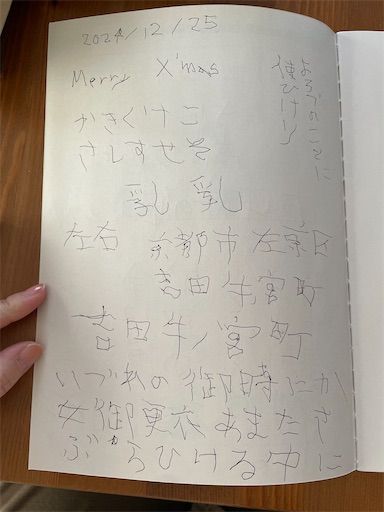 2024/12/25
Merry X'mas
よろづのことに
使ひけり
かきくけこ
さしすせそ
乳 乳
左右 京都市左京区
吉田牛宮町
吉田牛ノ宮町
いづれの御時にか
女御更衣あまたさ
ぶらひける中に